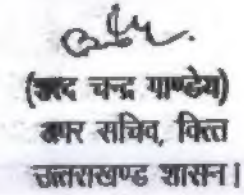 (शरद चन्द्र पाण्डेय)
अपर सचिव, वित्त
उत्तराखण्ड शासन।